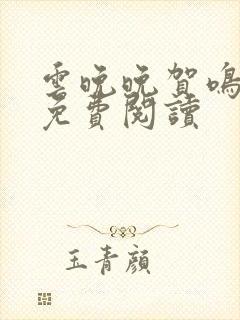 雲晚晚賀鳴
免費閱讀
玉青顏